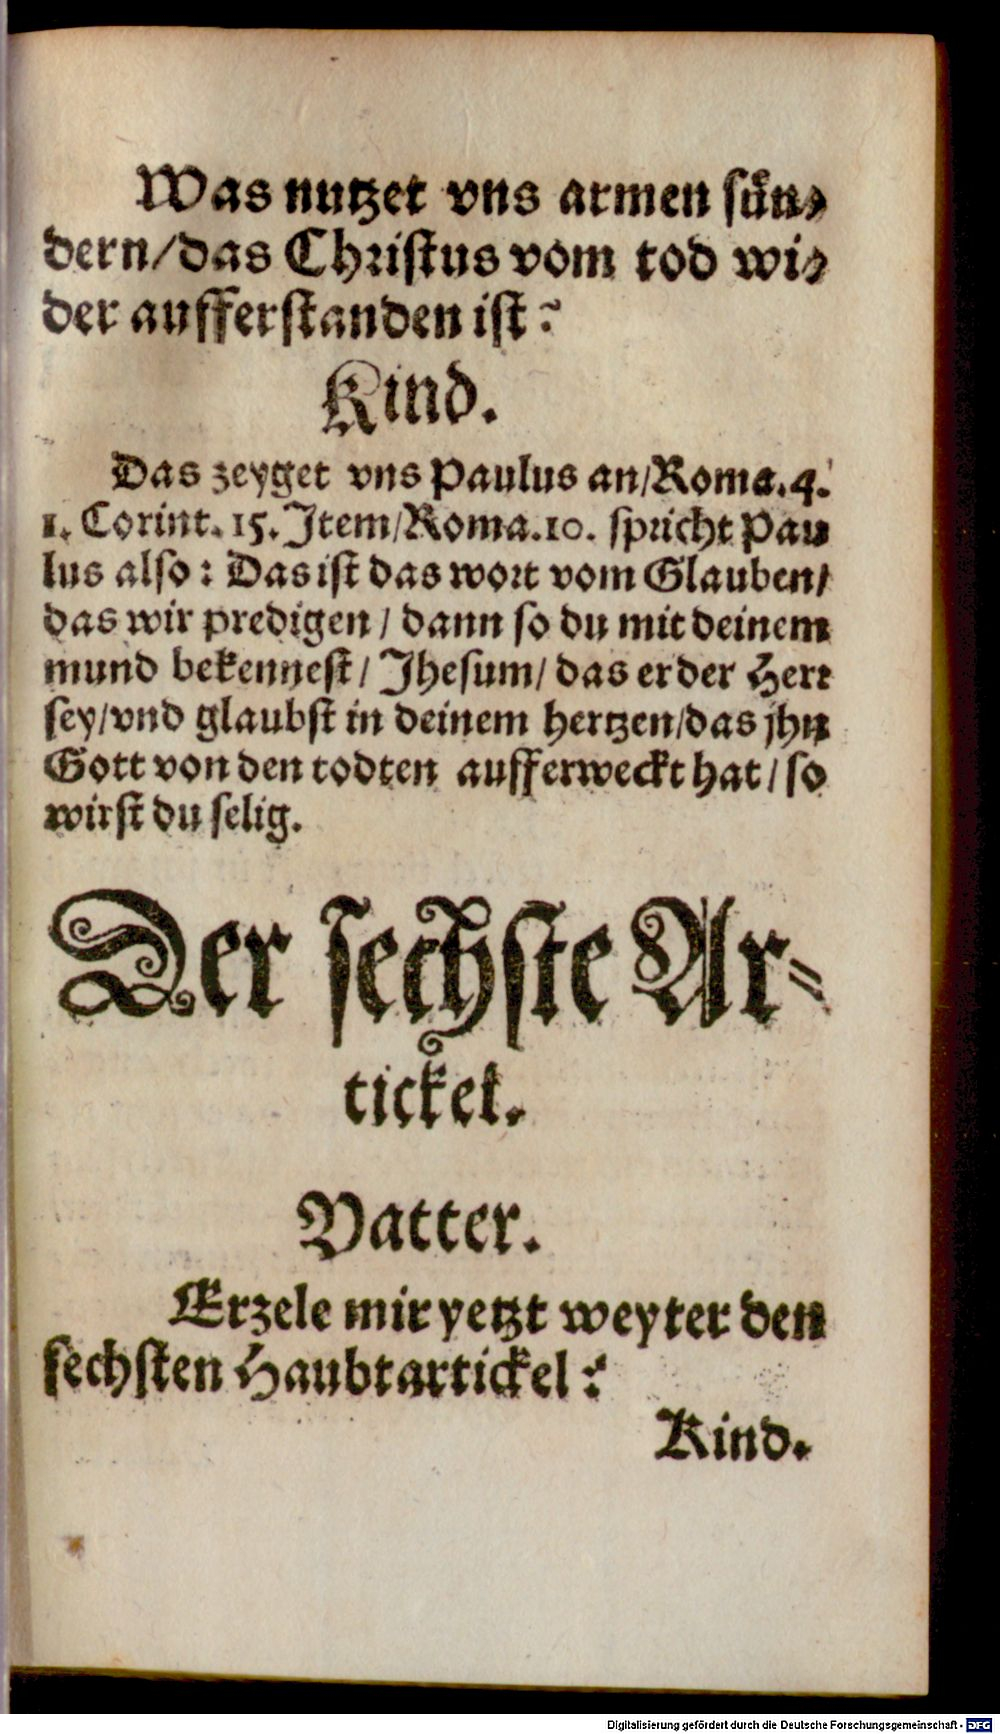 Was nutzet vns armen sün-
dern/das Christus vom tod wi-
der aufferstanden ist?
Kind.
Das zeyget vns Paulus an/Roma.4.
1. Corint. 15. Item/Roma.10. spricht Pau
lus also: Das ist das wort vom Glauben/
das wir predigen / dann so du mit deinem
mund bekennest/ Jhesum/ das er der Herr
sey/vnd glaubst in deinem hertzen/das jhn
Gott von den todten aufferweckt hat / so
wirst du selig.
Der sechste Ar-
tickel.
Vatter.
Erzele mir yetzt weyter den
sechsten Haubtartickel?
Kind.
Digitalisierung gefördert durch die Deutsche Forschungsgemeinschaft - DFG